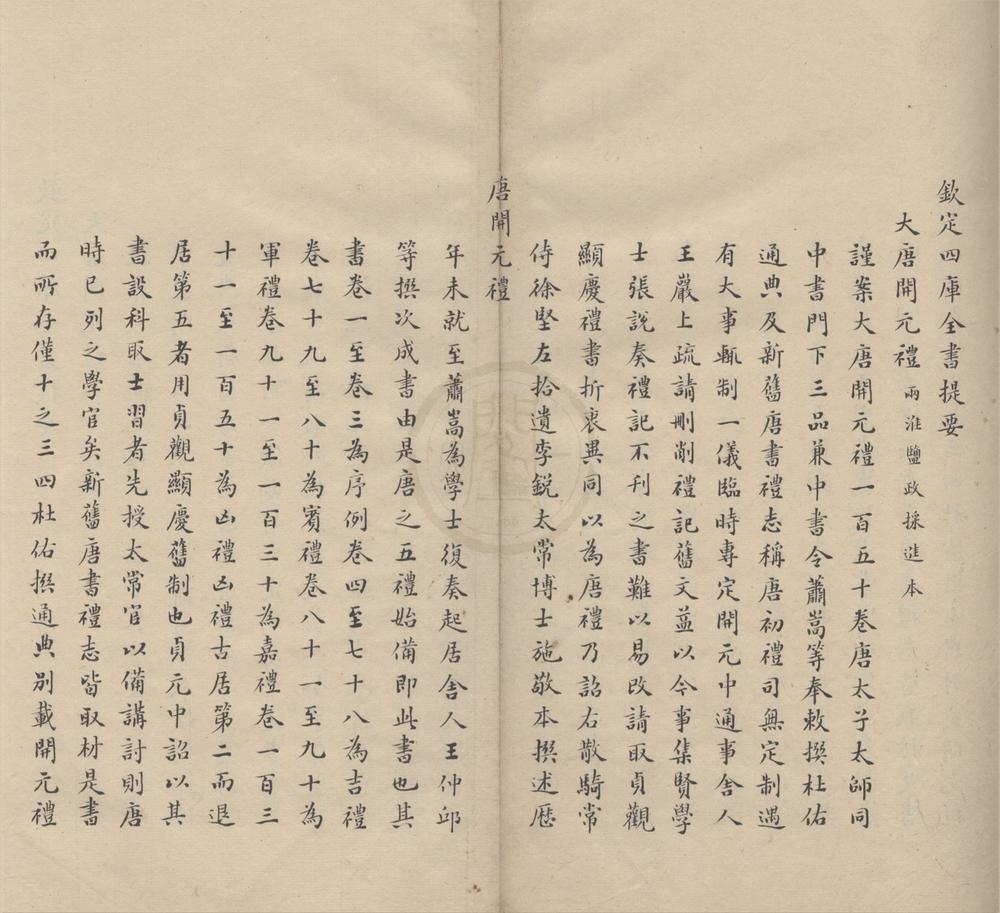 欽定四庫全書提要
大唐開元禮兩淮鹽政採進本
謹案大唐開元禮一百五十卷唐太子太師同
中書門下三品兼中書令蕭嵩等奉敕撰杜佑
通典及新舊唐書禮志稱唐初禮司無定制遇
有大事輒制一儀臨時專定開元中通事舍人
王巖上疏請刪削禮記舊文益以今事集賢學
士張說奏禮記不刊之書難以易改請取貞觀
顯慶禮書折衷異同以為唐禮乃詔右散騎常
侍徐堅左拾遺李銳太常博士施敬本撰述歷
唐開元禮
年未就至蕭嵩為學士復奏起居舍人王仲邱
等撰次成書由是唐之五禮始備即此書也其
書卷一至卷三為序例卷四至七十八為吉禮
卷七十九至八十為賓禮卷八十一至九十為
軍禮卷九十一至一百三十為嘉禮卷一百三
十一至一百五十為凶禮凶禮古居第二而退
居第五者用貞觀顯慶舊制也貞元中詔以其
書設科取士習者先授太常官以備講討則唐
時已列之學官矣新舊唐書禮志皆取材是書
而所存僅十之三四杜佑撰通典別載開元禮